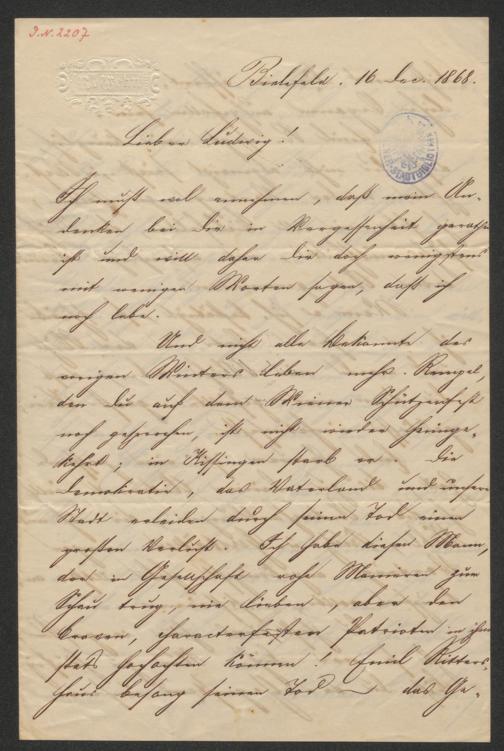 J.N. 2207
Bielefeld. 16 Dec. 1868.
Lieber Ludwig!
Ich muß wol annehmen, daß mein An-
denken bei Dir in Vergessenheit gerathen
ist und will daher Dir doch wenigstens
mit wenigen Worten sagen, daß ich
noch lebe.
Und nicht alle Bekannte des
vorigen Winters leben mehr. Rempel,
den Du auf dem Wiener Schützenfest
noch gesprochen, ist nicht wieder heimge-
kehrt; in Kissingen starb er. Die
Demokratie, das Vaterland und unsere
Stadt erleiden durch seinen Tod einen
großen Verlust. Ich habe diesen Mann,
der in Gesellschaft rohe Manieren zur
Schau trug, nie lieben, aber den
braven, characterfesten Patrioten in ihm
stets hochachten können! Emil Ritters-
haus besang seinen Tod — das Ge-